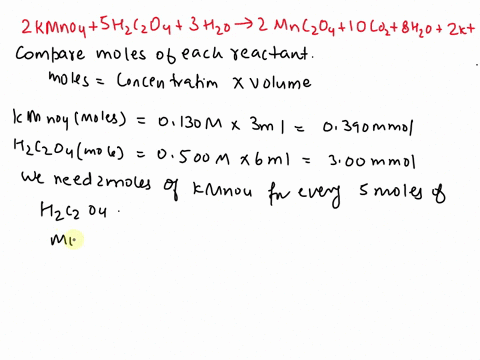 2KMnO4 + 5H2C2O4 + 3H2O → 2MnC2O4 + 10CO2 + 8H2O + 2K+
Compare moles of each reactant.
moles = Concentration x volume
KMnO4 (moles) = 0.130M x 3ml = 0.390mmol
H2C2O4 (mole) = 0.500M x 6ml = 3.00mmol
We need 2moles of KMnO4 for every 5 moles of
H2C2O4.